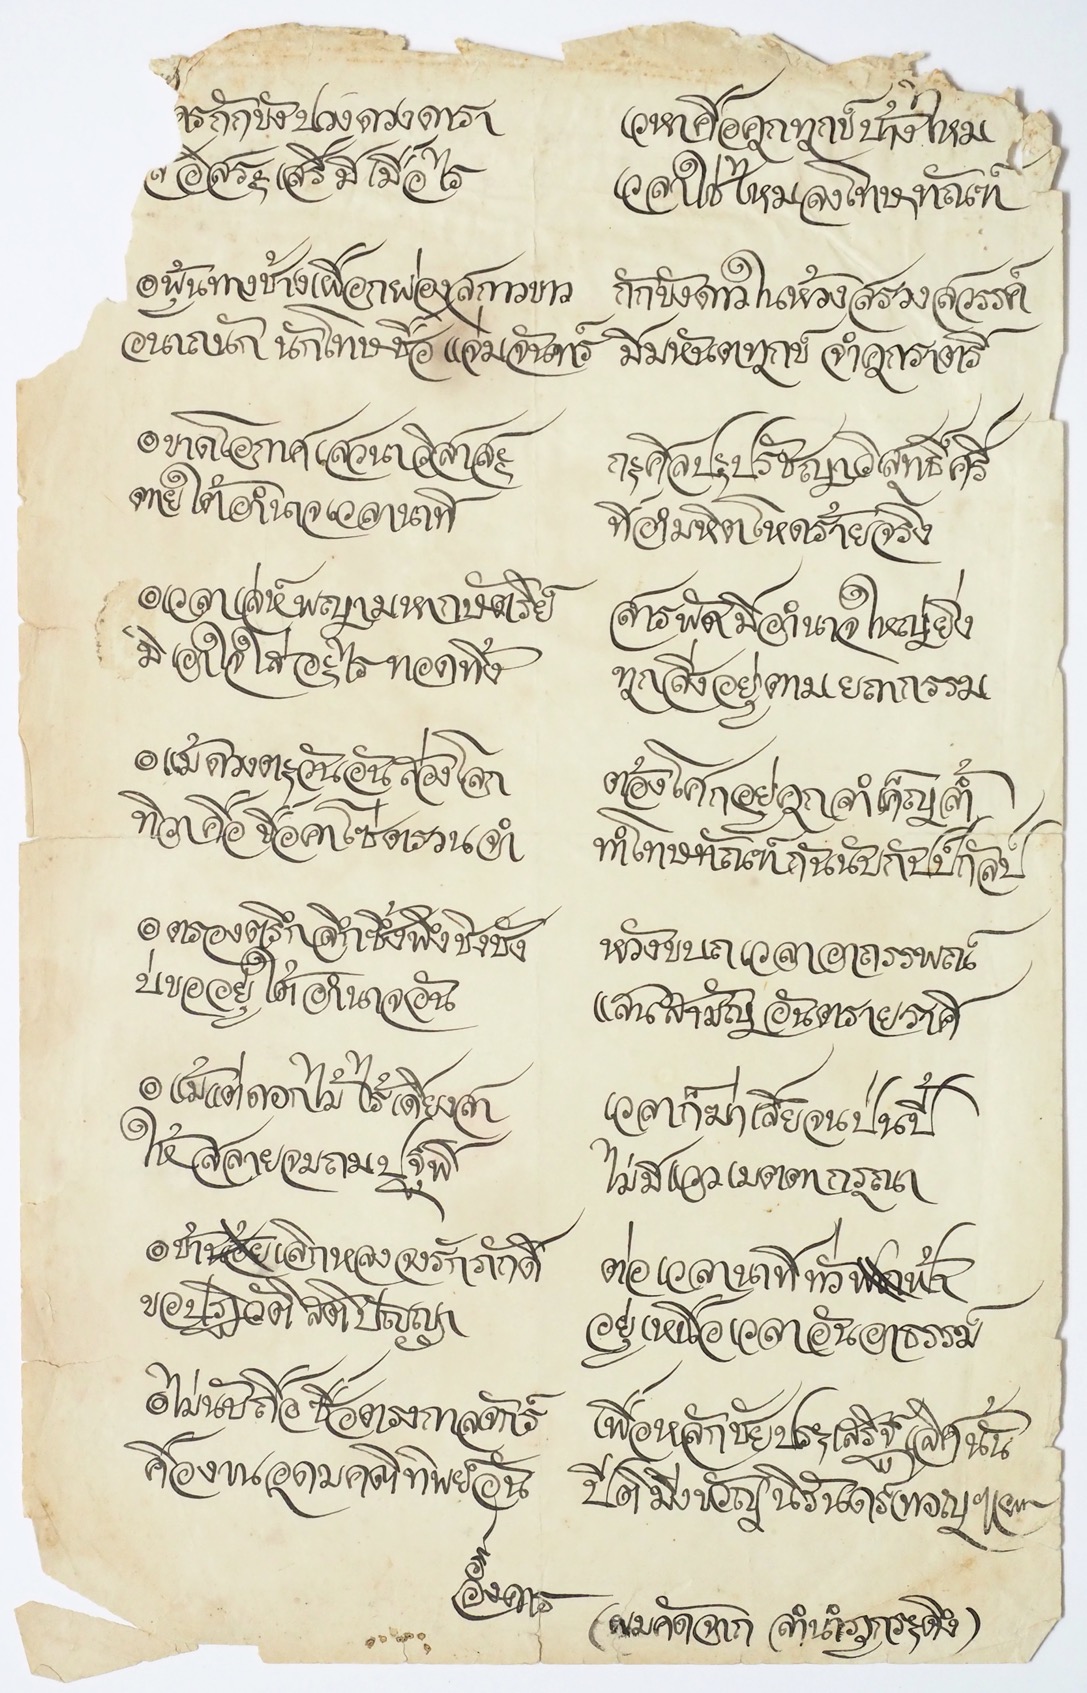 กักขังปวงดวงดารา เวหาคือคุกทุกข์บ้างไหม
อิสระเสรีมีเมื่อไร เวลาใช่ไหมลงโทษทัณฑ์
๏ฟุ้นทางช้างเผือกผ่องสกาวขาว กักขังดาวในห้วงสรวงสวรรค์
อนาถนัก นักโทษชื่อ แจ่มจันทร์ มีมหันตทุกข์ จำคุกราตรี
๏ขาดโอกาศเสวนาวิสาสะ กะศิลปะปรัชญาวิสุทธิ์ศรี
ตายใต้อำนาจเวลานาที ที่อำมหิตโหดร้ายจริง
๏เวลาเล่ห์พญามหากษัตริย์ สารพัดมีอำนาจใหญ่ยิ่ง
มิเอาใจใส่อะไร ทอดทิ้ง ทุกสิ่งอยู่ตามยถากรรม
๏แม้ดวงตะวันอันส่องโลก ต้องโศกอยู่คุกลำเค็ญล้ำ
ทิวาคือขื่อคาโซ่ตรวนจำ ทำโทษทัณฑ์กันนับกัปป์กัลป์
๏ตรองตรึกลึกซึ้งพึงชิงชัง หวังขบถเวลาอาถรรพณ์
บ่ขออยู่ใต้อำนาจอัน แสนสามัญอันตรายราศี
๏แม้แต่ดอกไม้ไร้เดียงสา เวลาก็ฆ่าเสียจนป่นปี้
ให้สลายจมถมปฐพี ไม่มีแววเมตตากรุณา
๏ข้าเลิกหลงจงรักภักดี ต่อเวลานาทีทั่วฟ้า
ขอปฏิวัติสติปัญญา อยู่เหนือเวลาอันอาธรรม์
๏ไม่นับถือซื่อตรงกาลจักร์ เพื่อหลักชัยประเสริฐเลิศนั้น
คืองานอุดมคติทิพย์อัน ปีติมิ่งขวัญนิรันดร์เทอญฯ
อังคาร
(ผมคัดจาก ลำนำภูกระดึง)